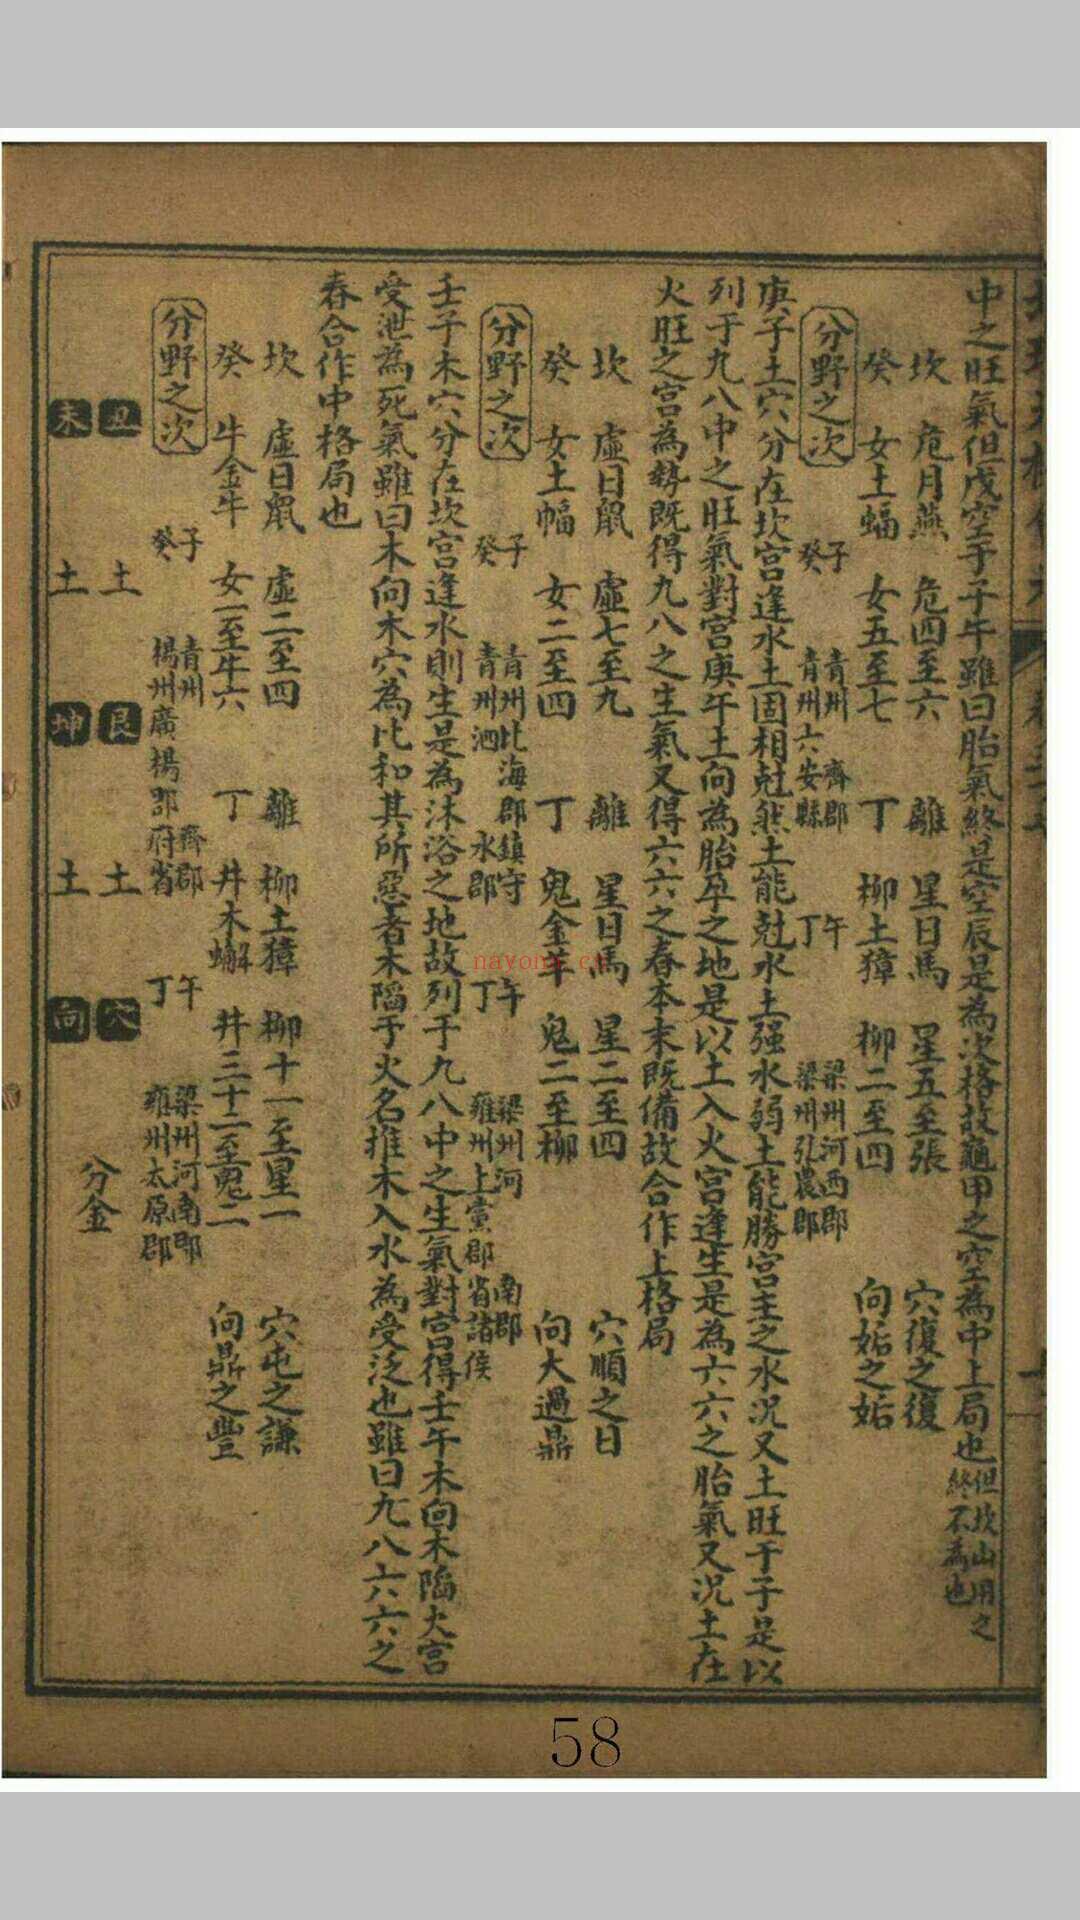 中之旺氣但戊空于子午雖曰胎氣終是空辰是為次格故龜甲之空為中上局也但坎山用之
終不為也
坎 危月燕 危四至六 離 星日馬 星五至張 穴復之復
癸 女土蝠 女五至七 丁 柳土獐 柳二至四 向姤之姤
分野之次 子 青州 齊郡 午 梁州河西郡
癸 青州六安縣 丁 梁州弘農郡
庚子土穴分在坎宮逢水土固相尅然土能尅水土强水弱土能勝宮主之水况又土旺于子是以
列于九八中之旺氣對宮庚午土向為胎孕之地是以土入火宮逢生是為六六之胎氣又况土在
火旺之宮為勢既得九八之生氣又得六六之春本末既備故合作上格局
坎 虛日鼠 虛七至九 離 星日馬 星二至四 穴順之日
癸 女土幅 女二至四 丁 鬼金羊 鬼二至柳 向大過鼎
分野之次 子 青州北海郡鎮守 午 梁州河 南郡
癸 青州泗 水郡 丁 雍州上黨郡省諸侯
壬子木穴分在坎宮逢水則生是為沐浴之地故列于九八中之生氣對宮得壬午木向木陷火宮
受泄為死氣雖曰木向木穴為比和其所惡者木陷于火名推木入水為受泛也雖曰九八六六之
春合作中格局也
坎 虛日鼠 虛二至四 離 柳土獐 柳十一至星一 穴屯之謙
癸 牛金牛 女一至牛六 丁 井木蠏 井三十二至鬼二 向鼎之豐
分野之次 子 青州 齊郡 午 梁州河南郡
癸 楊州廣楊郡府省 丁 雍州太原郡
丑 土 艮 土 穴 分金
未 土 坤 土 向
58
nayona.cn